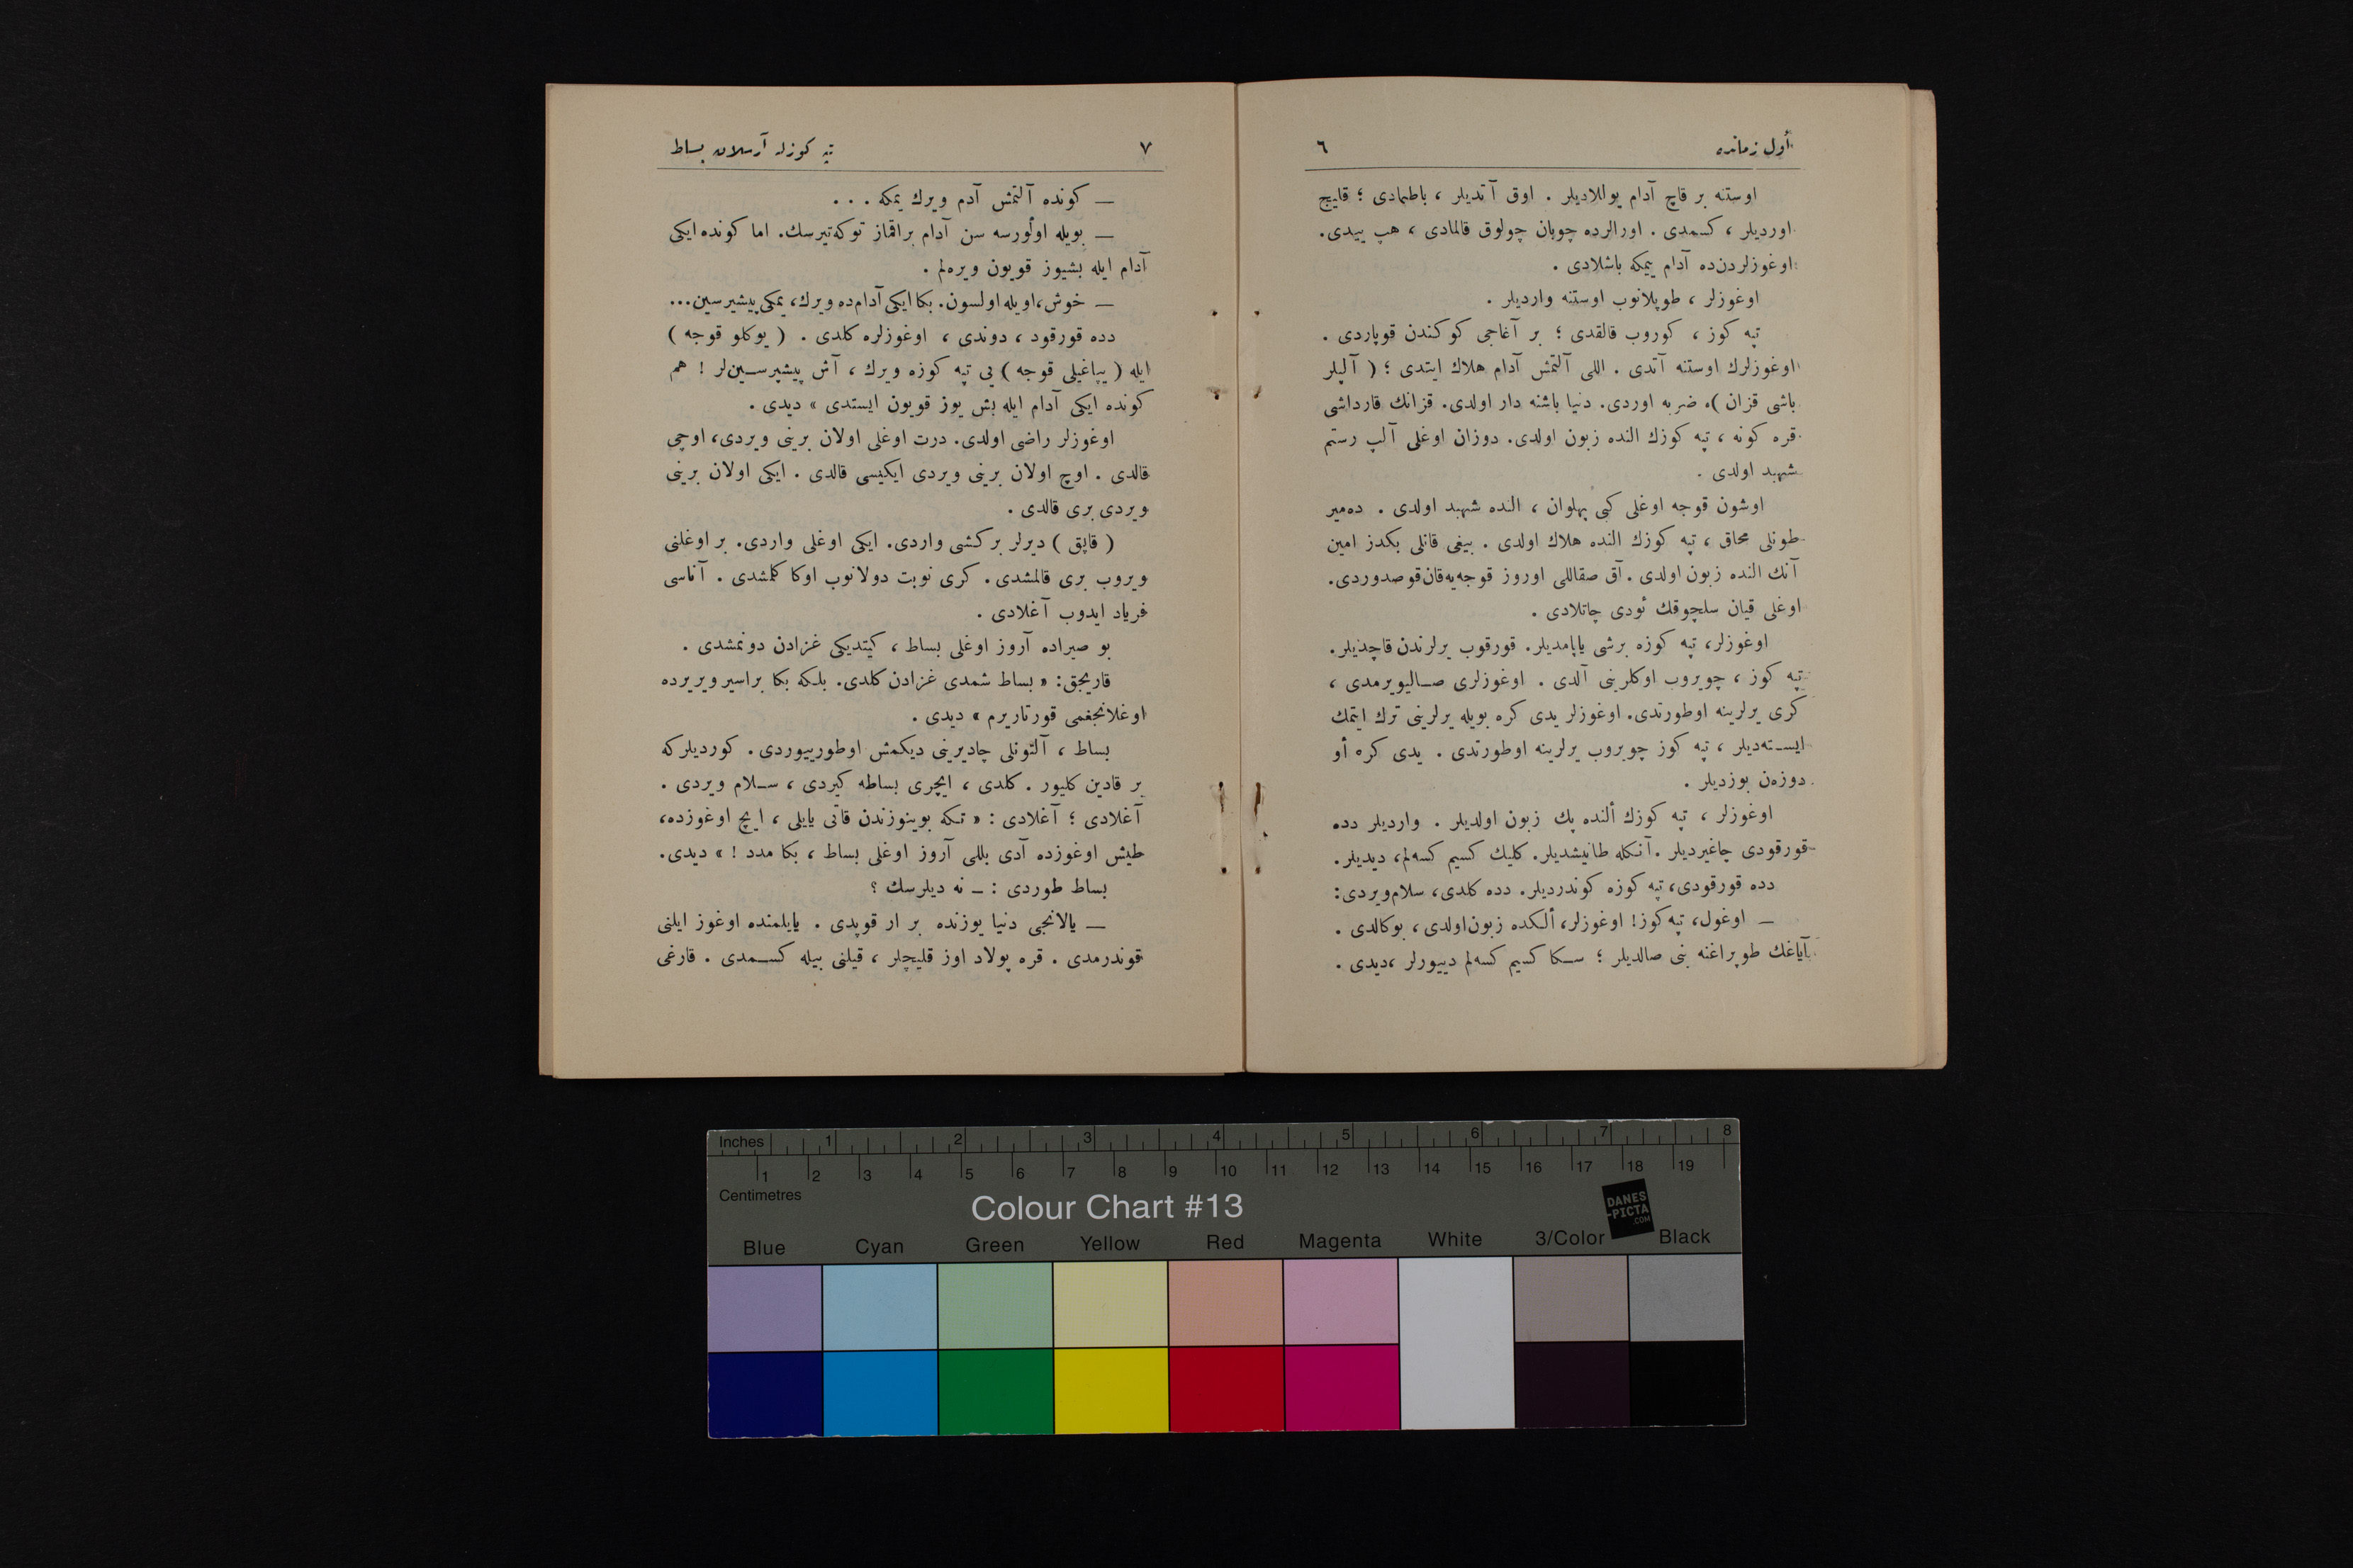 أول زمانده
٦
اوستنه بر قاچ آدام يوللاديلر . اوق آتديلر ، باطمادى ؛ قليج
اورديلر ، كسمدى . اورالرده چوبان چولوق قالمادى ، هپ ييدى .
اوغوزلردن ده آدام ييمكه باشلادى .
اوغوزلر ، طوپلانوب اوستنه وارديلر .
تپه كوز ، كوروب قالقدى ؛ بر آغاجى كوكندن قوپاردى .
اوغوزلرك اوستنه آتدى . اللى آلتمش آدام هلاك ايتدى ؛ ( آلپلر
باشى قزان )ه ضربه اوردى . دنيا باشنه دار اولدى . قزانك قارداشى
قره كونه ، تپه كوزك النده زبون اولدى . دوزان اوغلى آلپ رستم
شهيد اولدى .
اوشون قوجه اوغلى كبى پهلوان ، النده شهيد اولدى . ده مير
طونلى مماق ، تپه كوزك النده هلاك اولدى . بيغى قانلى بكدز امين
آنك النده زبون اولدى . آق صقاللى اوروز قوجه يه قان قوصدوردى .
اوغلى قيان سلچوقك ئودى چاتلادى .
اوغوزلر، تپه كوزه برشى ياپامديلر . قورقوب يرلرندن قاچديلر .
تپه كوز ، چويروب اوكلرينى آلدى . اوغوزلرى صاليويرمدى ،
كرى يرلرينه اوطورتدى . اوغوزلر يدى كره بويله يرلرينى ترك ايتمك
ايسته ديلر ، تپه كوز چويروب يرلرينه اوطورتدى . يدى كره أو
دوزه ن بوزديلر .
اوغوزلر ، تپه كوزك ألنده پك زبون اولديلر . وارديلر دده
قورقودى چاغيرديلر . آنكله طانيشديلر . كليك كسيم كسه لم، ديديلر .
دده قورقودى، تپه كوزه كوندرديلر . دده كلدى، سلام ويردى :
— اوغول، تپه كوز ! اوغوزلر، ألكده زبون اولدى ، بوكالدى .
آياغك طوپراغنه بنى صالديلر ؛ سكا كسيم كسه لم دييورلر ،ديدى .
٧
تپه كوزله آرسلان بساط
— كونده آلتمش آدم ويرك يمكه . . .
— بويله اولورسه سن آدام براقماز توكه تيرسك . اما كونده ايكى
آدام ايله بشيوز قويون ويره لم .
— خوش، اويله اولسون . بكا ايكى آدام ده ويرك، يمكى پيشيرسين ...
دده قورقود ، دوندى ، اوغوزلره كلدى . ( يوكلو قوجه )
ايله ( يپاغيلى قوجه ) يى تپه كوزه ويرك ، آش پيشيرسين لر ! هم
كونده ايكى آدام ايله بش يوز قويون ايستدى » ديدى .
اوغوزلر راضى اولدى . درت اوغلى اولان برينى ويردى، اوچى
قالدى . اوچ اولان برينى ويردى ايكيسى قالدى . ايكى اولان برينى
ويردى برى قالدى .
( قاپق ) ديرلر بركشى واردى . ايكى اوغلى واردى . بر اوغلنى
ويروب برى قالمشدى . كرى نوبت دولانوب اوكا كلمشدى . آناسى
فرياد ايدوب آغلادى .
بو صيراده آروز اوغلى بساط ، كيتديكى غزادن دونمشدى .
قاريجق : « بساط شمدى غزادن كلدى . بلكه بكا براسير ويريرده
اوغلانجغمى قورتاريرم » ديدى .
بساط ، آلتونلى چاديرينى ديكمش اوطورييوردى . كورديلركه
بر قادين كليور . كلدى ، ايچرى بساطه كيردى ، سلام ويردى .
آغلادى ؛ آغلادى : « تكه بوينوزندن قاتى يايلى ، ايچ اوغوزده،
طيش اوغوزده آدى بللى آروز اوغلى بساط ، بكا مدد ! » ديدى .
بساط طوردى : — نه ديلرسك ؟
— يالانجى دنيا يوزنده بر ار قوپدى . يايلمنده اوغوز ايلنى
قوندرمدى . قره پولاد اوز قليچلر ، قيلنى بيله كسمدى . قارغى
Inches 1 2 3 4 5 6 7 8
1 2 3 4 5 6 7 8 9 10 11 12 13 14 15 16 17 18 19
Centimetres
Colour Chart #13
DANES
-PICTA
.COM
Blue Cyan Green Yellow Red Magenta White 3/Color Black